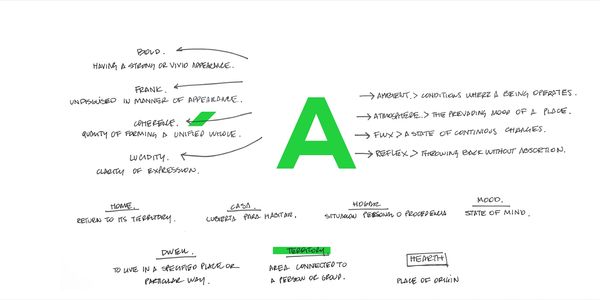 BOLD.
HAVING A STRONG OR VIVID APPEARANCE.
FRANK.
UNDISGUISED IN MANNER OF APPEARANCE.
COHERENCE.
QUALITY OF FORMING A UNIFIED WHOLE.
LUCIDITY.
CLARITY OF EXPRESSION.
A
AMBIENT. > CONDITIONS WHERE A BEING OPERATES.
ATMOSPHERE. > THE PREVAILING MOOD OF A PLACE.
FLUX > A STATE OF CONTINOUS CHANGES.
REFLEX > THROWING BACK WITHOUT ABSORTION.
HOME.
RETURN TO ITS TERRITORY.
CASA.
CUBIERTA PARA HABITAR.
HOGAR
SITUACION PERSONAS O PROCEDENCIA
MOOD.
STATE OF MIND.
DWELL.
TO LIVE IN A SPECIFIED PLACE OR
PARTICULAR WAY.
TERRITORY.
AREA CONNECTED TO
A PERSON OR GROUP.
HEARTH
PLACE OF ORIGIN